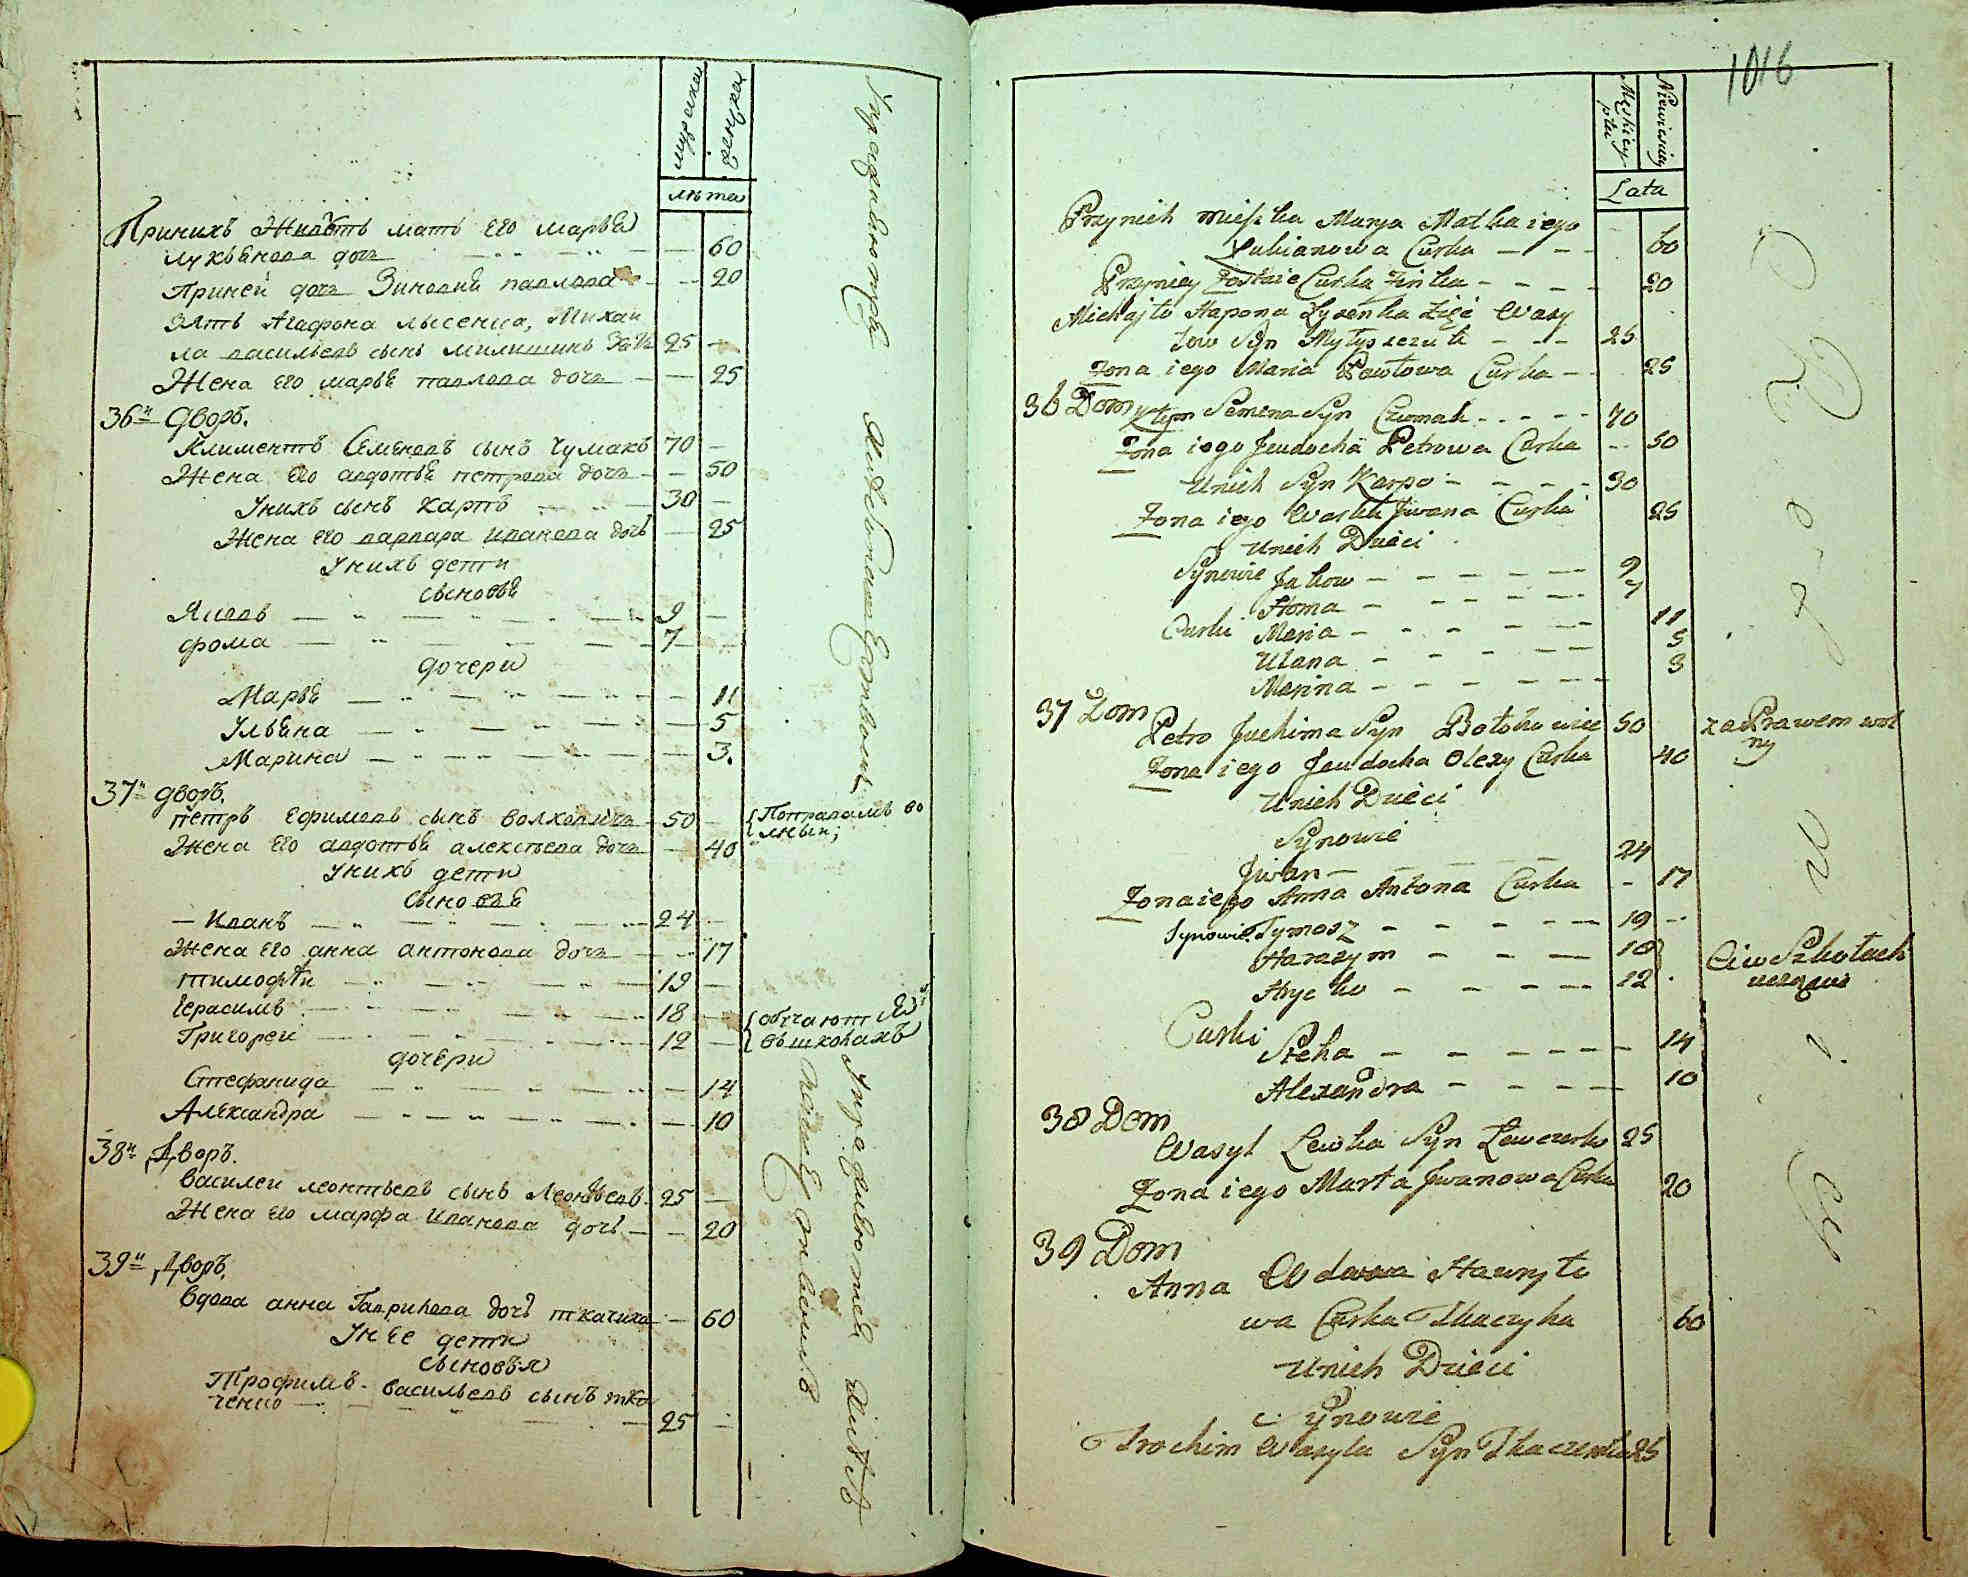 мужеска
женска
лѣта
Принихъ Живетъ мать его марья
лукьянова дочь 60
приней дочь Зиновия павлова 20
зять Агафона лысенка, Михаи
ла васильевъ сынъ 25
Жена его марья павлова дочь 25
36й дворъ.
Климентъ Семеновъ сынъ Чумакъ 70
Жена его авдотья петрова дочь 50
Унихъ сынъ Карпъ 30
Жена его варвара иванова дочь 25
Унихъ дети
сыновья
Яковъ 9
фома 7
дочери
Марья 11
Ульяна 5
Марина 3.
37й дворъ.
петръ Ефимовъ сынъ волховичь 50
Потравамъ во
льны;
Жена его авдотья алексеева дочь 40
Унихъ дети
сыновья
Иванъ 24
Жена его анна антонова дочь 17
тимофѣи 19
Герасимъ 18
Григореи 12
обучаются
въ школахъ
дочери
Стефанида 14
Александра 10
38й Дворъ.
василеи леонтьевъ сынъ Леоньевъ 25
Жена его марфа иванова дочь 20
39й Дворъ.
вдова анна Гаврилова дочь ткачиха 60
Унее дети
сыновья
Трофимъ васильевъ сынъ тка
ченко 25
1016
Męskiey
płci
Niewiesciey
Lata
Przynich mieszka Marya Matka iego
Lukianowa Curka 60
Przyniey Zostaie Curka Zinka 20
Michayło Hapona Lysenka Zięć Wasy
low Syn 25
Zona iego Maria Pawłowa Curka 25
36 Dom
Klym Semena Syn Czumak 70
Zona iego Jeudocha Petrowa Curka 50
Unich Syn Karpo 30
Zona iego Waska Jwana Curka 25
Unich Dzieci
Synowie Jakow 9
Homa 7
Curki Maria 11
Ulana 5
Marina 3
37 Dom
Petro Juchima Syn Bołohowicz 50
za Prawem wol
ny
Zona iego Jeudocha Olexy Curka 40
Unich Dzieci
Synowie
Jwan 24
Zona iego Anna Antona Curka 17
Synowie Tymosz 19
Harasym 18
Hrycko 12
Ci w Szkołach
uczą się
Curki
Steha 14
Alexandra 10
38 Dom
Wasyl Lewka Syn Lewczenko 25
Zona iego Marta Jwanowa Curka 20
39 Dom
Anna Wdowa Hawryło
wa Curka Tkaczyka 60
Unich Dzieci
Synowie
Trochim Wasyla Syn Tkaczenko 25